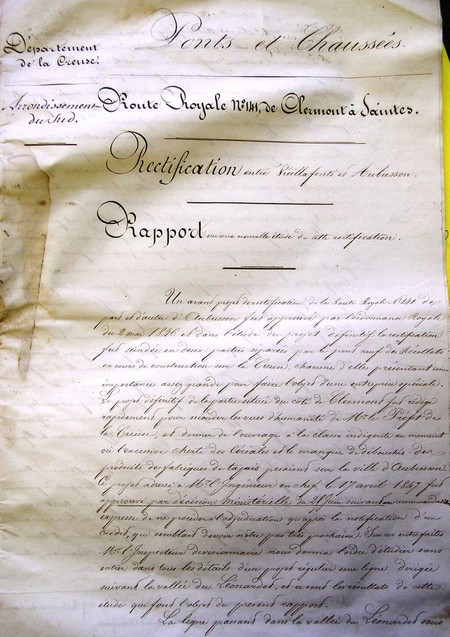 Ponts et Chaussées.
Département
de la Creuse.
Arrondissement
du Sud.
Route Royale N° 141, de Clermont à Saintes.
Rectification entre Vieillafont et Aubusson.
Rapport sur une nouvelle étude de cette rectification.
Un avant projet de rectification de la Route Royale N° 141 de
part et d'autre d'Aubusson fut approuvé par l'ordonnance Royale
du 2 mai 1846 et dans l'étude du projet définitif la rectification
fut scindée en deux parties séparées par le pont neuf des Récollets
en cours de construction sur la Creuse, chacune d'elles présentant une
importance assez grande pour faire l'objet d'une entreprise spéciale.
Le projet définitif de la partie située du côté de Clermont fut rédigé
rapidement pour seconder les vues d'humanité de Mr. le Préfet de
la Creuse, et donner de l'ouvrage à la classe indigente au moment
où l'excessive cherté des céréales et le manque de débouchés des
produits des fabriques de tapis pesaient sur la ville d'Aubusson.
Ce projet adressé à Mr. l'Ingénieur en chef le 17 avril 1847 fut
approuvé par décision ministérielle du 28 Juin suivant
expresse de ne procéder à l'adjudication qu'après la notification d'un
crédit, qui semblait devoir n'être pas très prochain. Sur ces entrefaites
Mr. l'Inspecteur divisionnaire nous donna l'ordre d'étudier sans
entrer dans tous les détails d'un projet régulier une ligne dirigée
suivant la vallée du Léonardet, et ce sont les résultats de cette
étude qui font l'objet du présent rapport.
La ligne passant dans la vallée du Léonardet